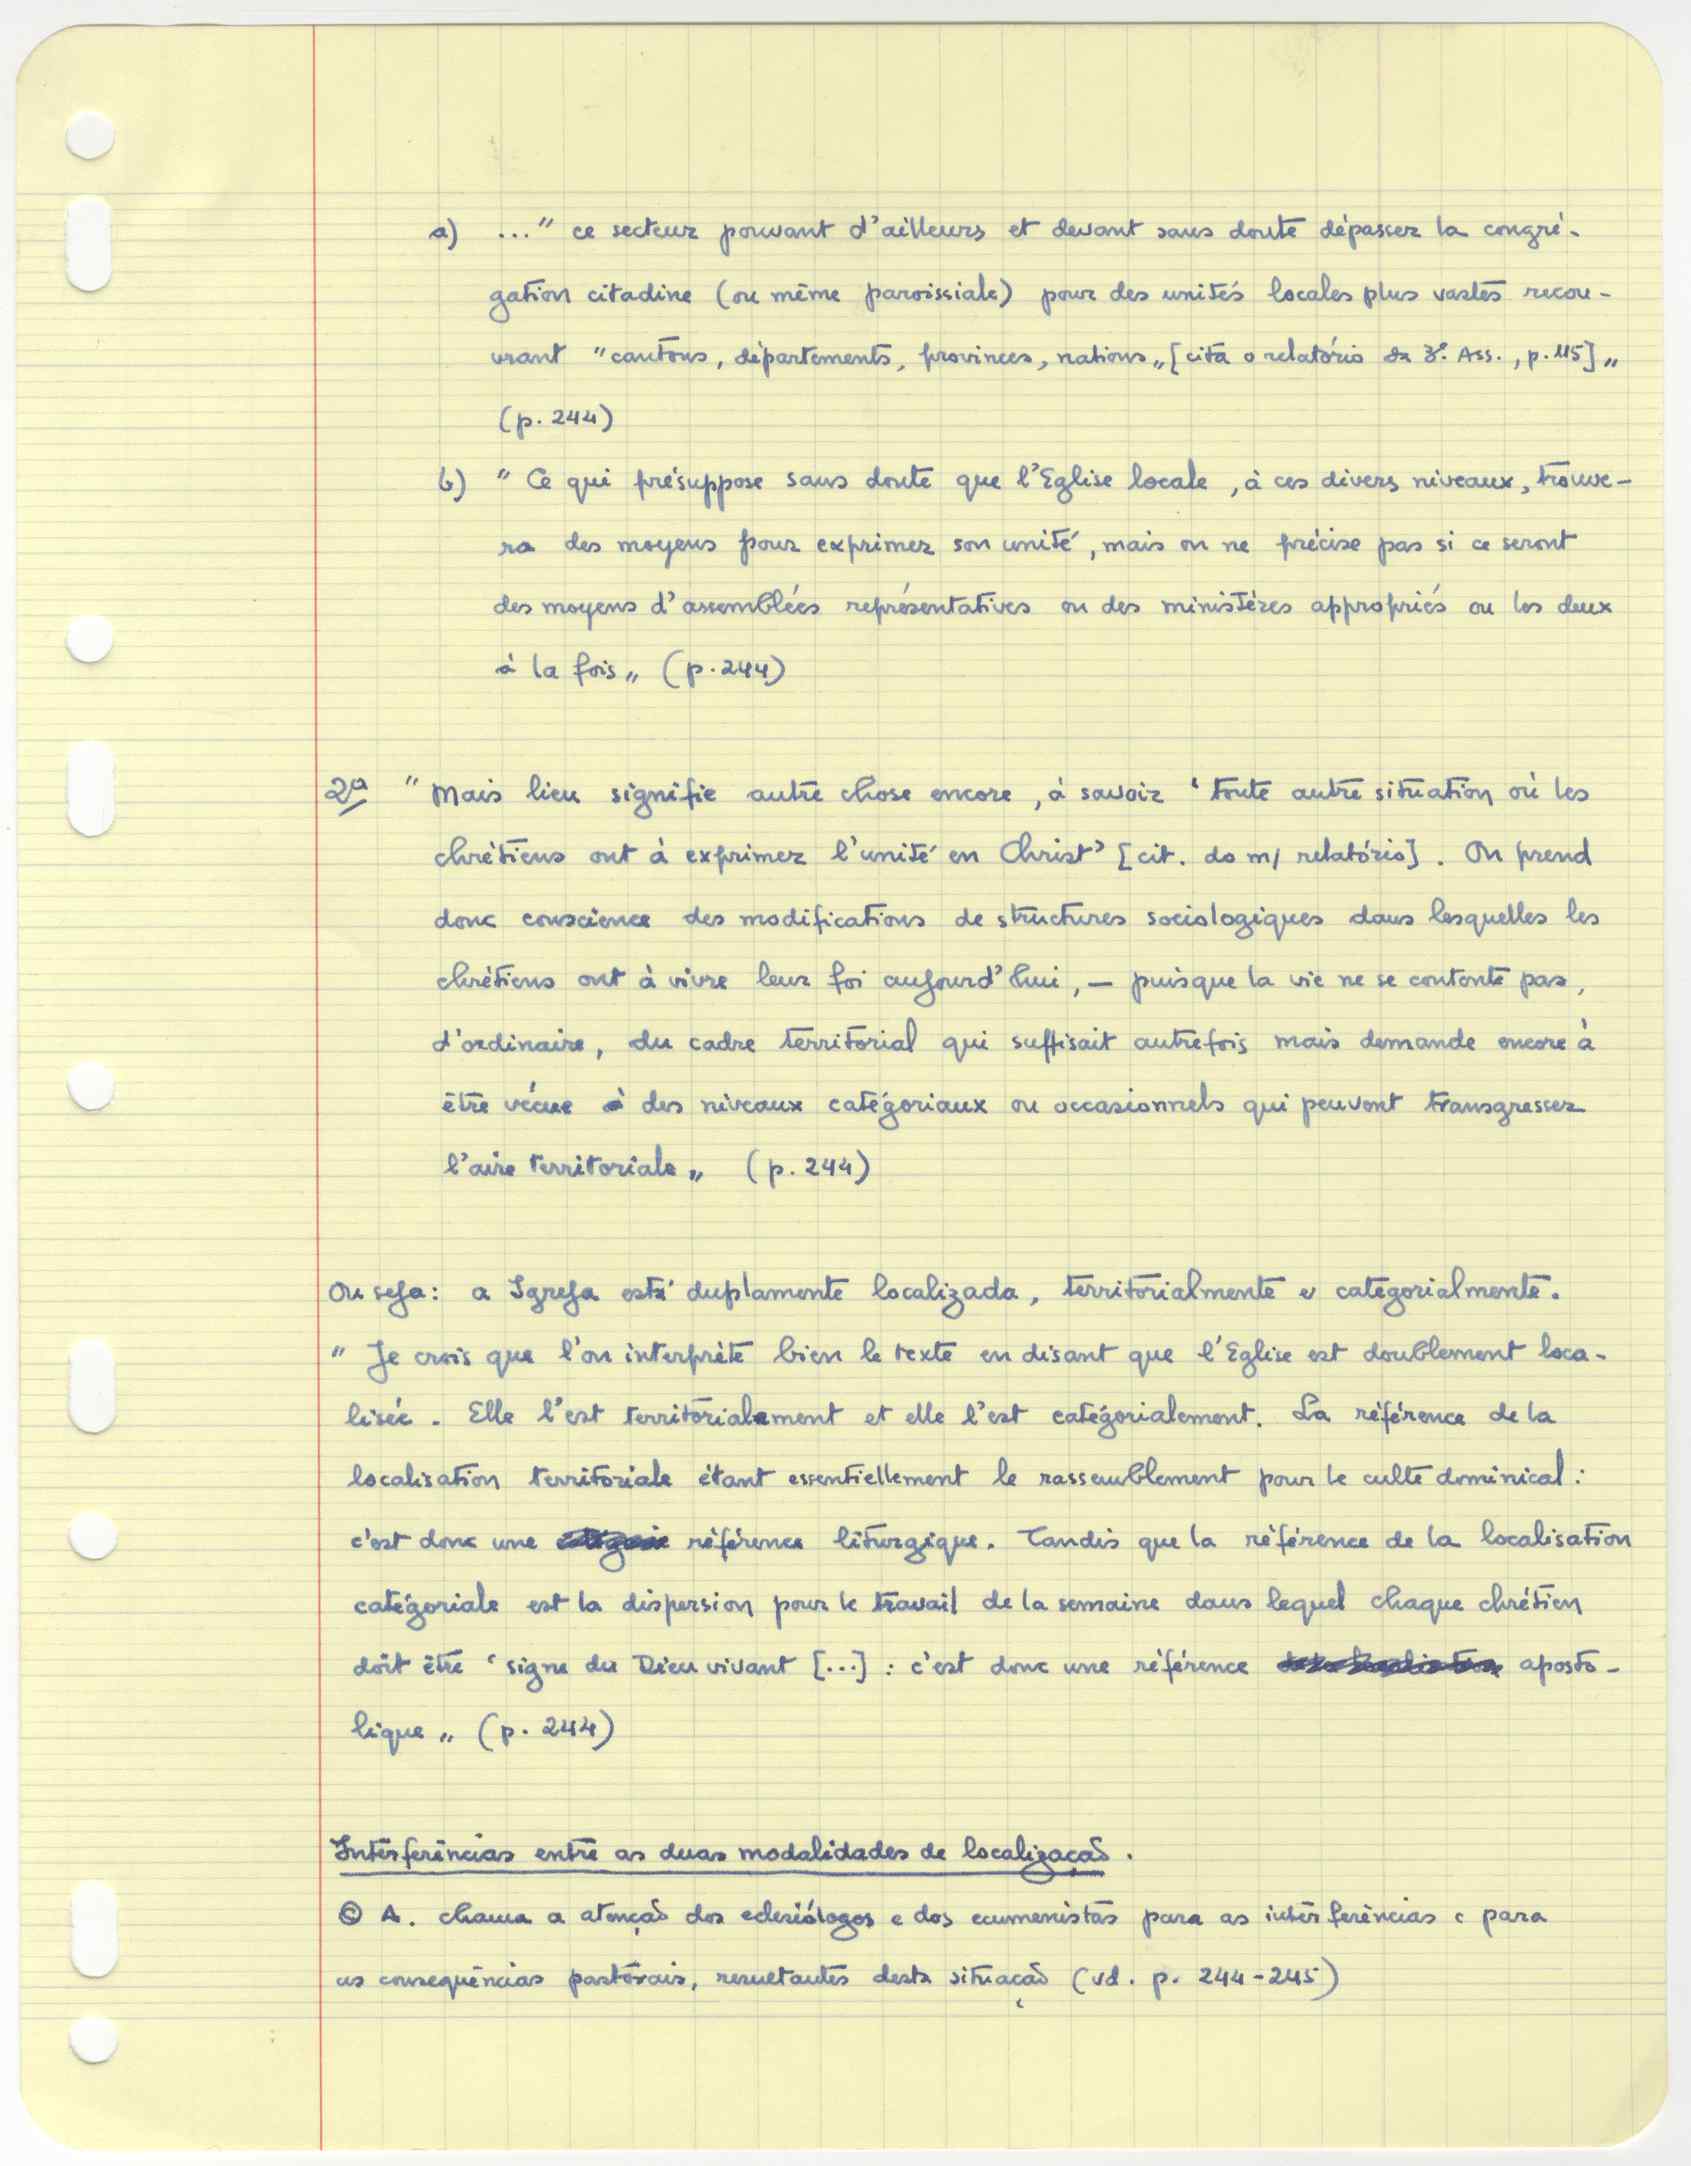 a) ..." ce secteur pouvant d'ailleurs et devant sans doute dépasser la congré-
gation citadine (ou même paroissiale) pour des unités locales plus vastes recou-
vrant "cantons, départements, provinces, nations„ [cita o relatório da 3ª. Ass., p. 115]„
(p. 244)
b) " Ce qui présuppose sans doute que l'Eglise locale, à ces divers niveaux, trouve-
ra des moyens pour exprimer son unité, mais on ne précise pas si ce seront
des moyens d'assemblées représentatives ou des ministères appropriés ou les deux
à la fois„ (p. 244)
2ª " Mais lieu signifie autre chose encore, à savoir 'toute autre situation où les
chrétiens ont à exprimer l'unité en Christ' [cit. do m/ relatório]. On prend
donc conscience des modifications de structures sociologiques dans lesquelles les
chrétiens ont à vivre leur foi aujourd'hui, — puisque la vie ne se contente pas,
d'ordinaire, du cadre territorial qui suffisait autrefois mais demande encore à
être vécue à des niveaux catégoriaux ou occasionnels qui peuvent transgresser
l'aire territoriale„ (p. 244)
Ou seja: a Igreja está duplamente localizada, territorialmente e categorialmente.
" Je crois que l'on interprète bien le texte en disant que l'Eglise est doublement loca-
lisée. Elle l'est territorialement et elle l'est catégorialement. La référence de la
localisation territoriale étant essentiellement le rassemblement pour le culte dominical :
c'est donc une référence liturgique. Tandis que la référence de la localisation
catégoriale est la dispersion pour le travail de la semaine dans lequel chaque chrétien
doit être 'signe du Dieu vivant [...] : c'est donc une référence aposto-
lique„ (p. 244)
Interferências entre as duas modalidades de localização.
O A. chama a atenção dos eclesiólogos e dos ecumenistas para as interferências e para
as consequências pastorais, resultantes desta situação (vd. p. 244-245)